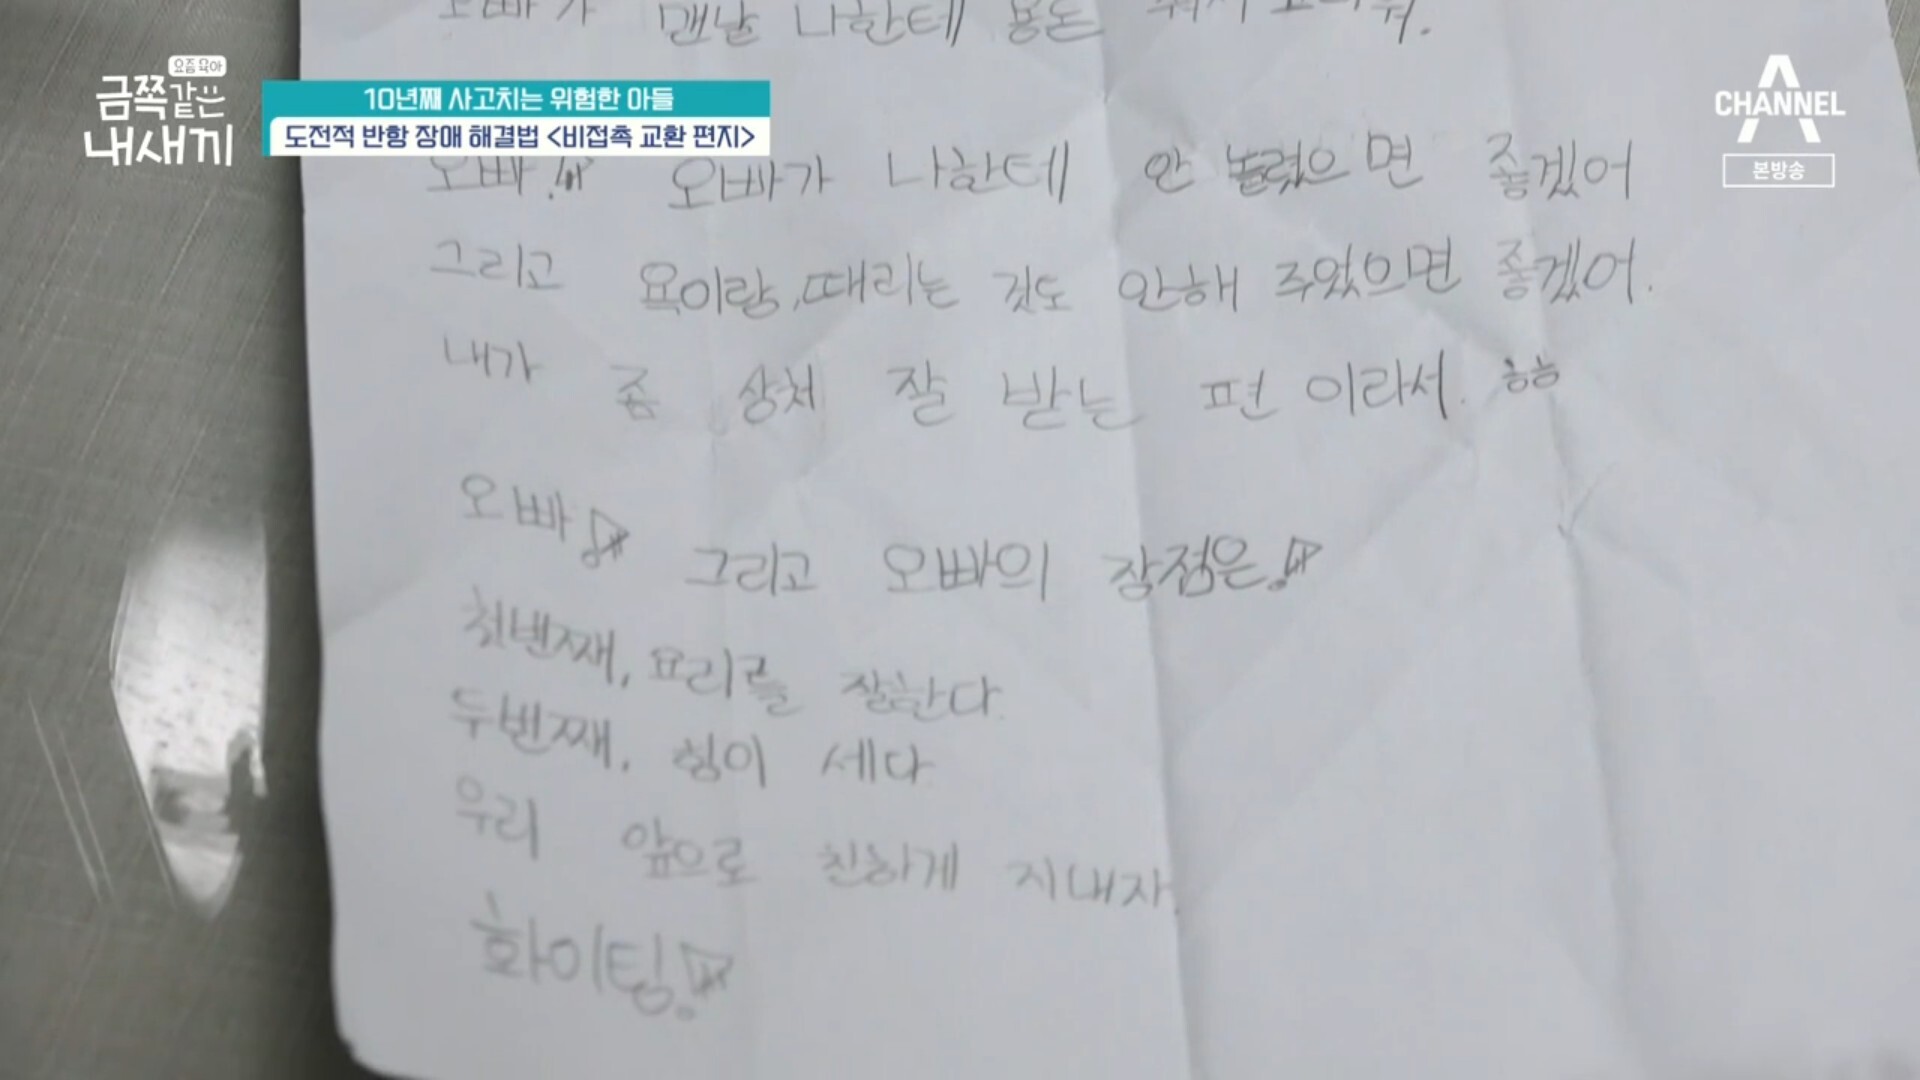 요즘 육아
금쪽같은
내새끼
10년째 사고치는 위험한 아들
도전적 반항 장애 해결법 <비접촉 교환 편지>
CHANNEL A
본방송
오빠가 맨날 나한테 용돈 줘서 고마워.
오빠! 오빠가 나한테 안 놀렸으면 좋겠어
그리고 욕이랑, 때리는 것도 안해 주었으면 좋겠어.
내가 좀 상처 잘 받는 편 이라서. ㅎㅎ
오빠! 그리고 오빠의 장점은!
첫번째, 요리를 잘한다.
두번째, 힘이 세다
우리 앞으로 친하게 지내자.
화이팅!